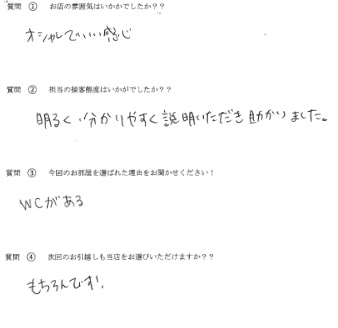 質問 ① お店の雰囲気はいかかでしたか??
オシャレでいい感じ
質問 ② 担当の接客態度はいかがでしたか??
明るく分かりやすく説明いただき助かりました。
質問 ③ 今回のお部屋を選ばれた理由をお聞かせください!
WCがある
質問 ④ 次回のお引越しも当店をお選びいただけますか??
もちろんです!